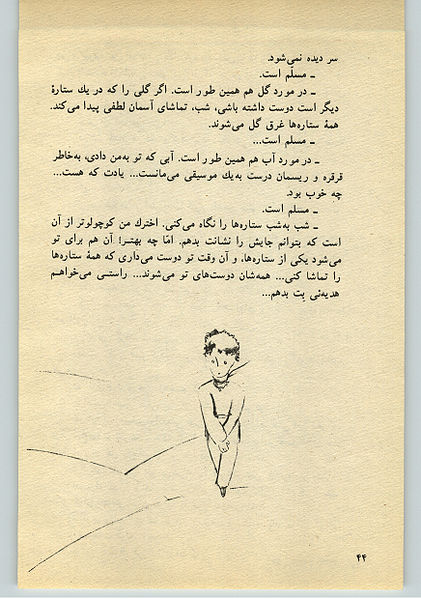 سر دیده نمی‌شود.
ـ مسلّم است.
ـ در مورد گل هم همین طور است. اگر گلی را که در یك ستارهٔ
دیگر است دوست داشته باشی، شب، تماشای آسمان لطفی پیدا می‌کند.
همهٔ ستاره‌ها غرق گل می‌شوند.
ـ مسلم است...
ـ در مورد آب هم همین طور است. آبی که تو به‌من دادی، به‌خاطر
قرقره و ریسمان درست به‌یك موسیقی می‌مانست... یادت که هست...
چه خوب بود.
ـ مسلم است.
ـ شب به‌شب ستاره‌ها را نگاه می‌کنی. اخترك من کوچولوتر از آن
است که بتوانم جایش را نشانت بدهم. امّا چه بهتر! آن هم برای تو
می‌شود یکی از ستاره‌ها، و آن وقت تو دوست می‌داری که همهٔ ستاره‌ها
را تماشا کنی... همه‌شان دوست‌های تو می‌شوند... راستی می‌خواهم
هدیه‌ئی بِت بدهم...
۴۴